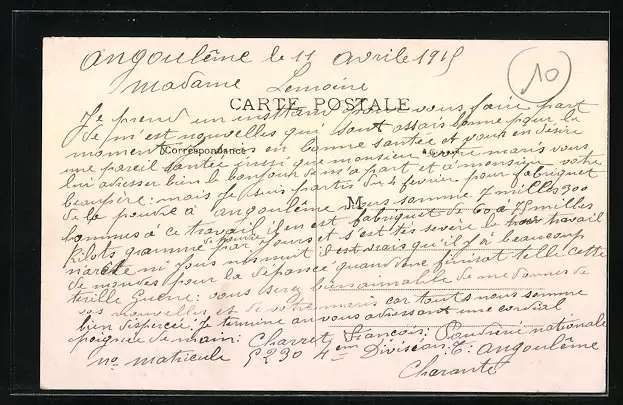 Angoulême le 11 avrile 1915
10
Madame Lemoine
CARTE POSTALE
Je prend un insttant pour vous faire part
de m'est nouvelles qui sont assais bonne pour le
Correspondance
moment je suis en bonne santée et vous en désire
une pareil santée aussi que monsieur votre maris vous
lui adresser bien le bonjour de m'a part et à monsieur votre
beaupère: mais je suis partis du 4 fevrier pour fabriquer
de la poudre à angoulême nous somme 7 milles 300
M
hommes à ce travail il en est fabriquer de 60 à 75 milles
Kilots gramme de poudre par jours et s'est tes severe le travail
n'arrete ni jous ni nuit il est vrais qu'il y a beaucoup
de mondes pour la dépance quand donc finirat telle cette
terille Guerre: vous serez bien aimable de me donnes de
vos nouvelles et de votre maris car touts nous somme
bien disperçée: Je termine au vous adressant une cordial
poignée de main: Charret François: Poudrerie nationale
no matricule 5230 4em Division: T: angoulême
Charente